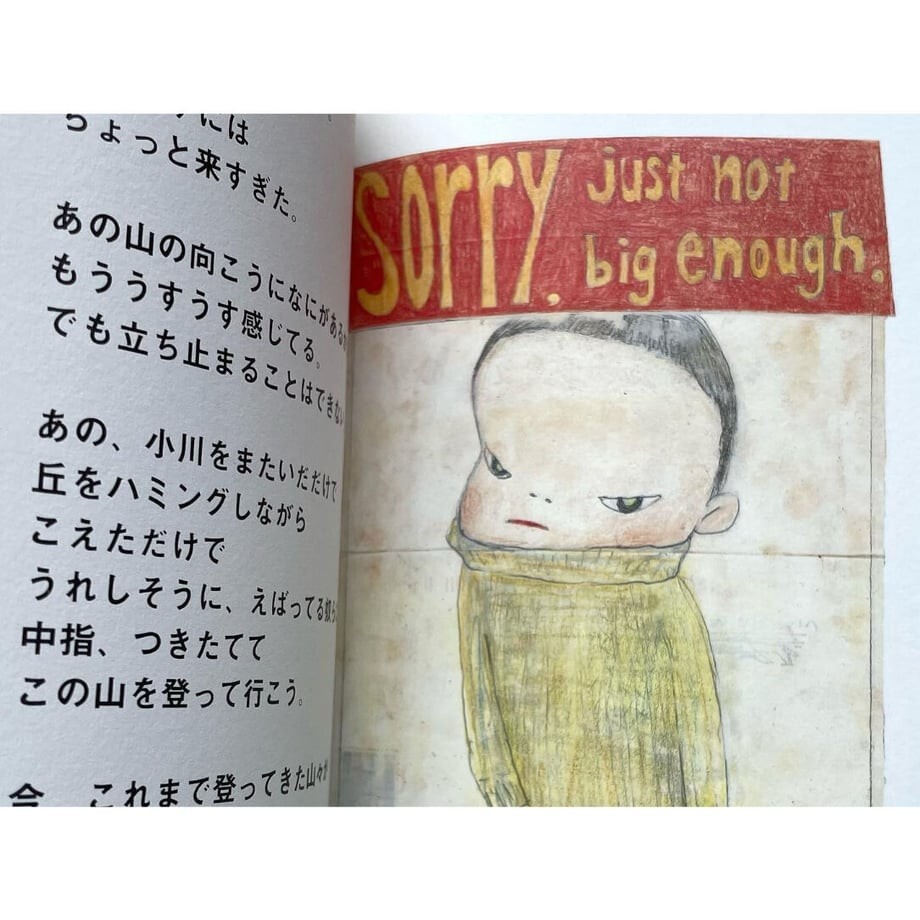 には
ちょっと来すぎた。
あの山の向こうになにがある
もううすうす感じてる。
でも立ち止まることはできない
あの、小川をまたいだだけで
丘をハミングしながら
こえただけで
うれしそうに、えばってる奴ら
中指、つきたてて
この山を登って行こう。
今、これまで登ってきた山々が
sorry, just not
big enough.